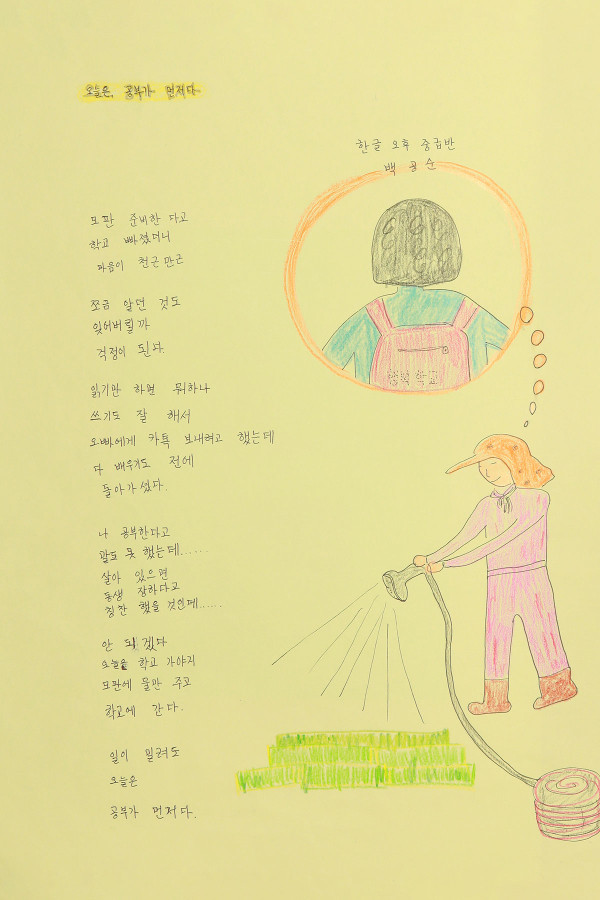 오늘은, 공부가 먼저다
한글 오후 중급반
백 순
학교
모판 준비한 다고
학교 빠졌더니
마음이 천근만근
쪼금 알던 것도
잊어버릴까
걱정이 된다.
읽기만 하면 뭐하나
쓰기도 잘 해서
오빠에게 카톡 보내려고 했는데
다 배우기도 전에
돌아가셨다.
나 공부한다고
말도 못 했는데......
살아 있으면
동생 장하다고
칭찬 했을 것인데......
안 되겠다
오늘은 학교 가야지
모판에 물만 주고
학교에 간다.
일이 밀려도
오늘은
공부가 먼저다.